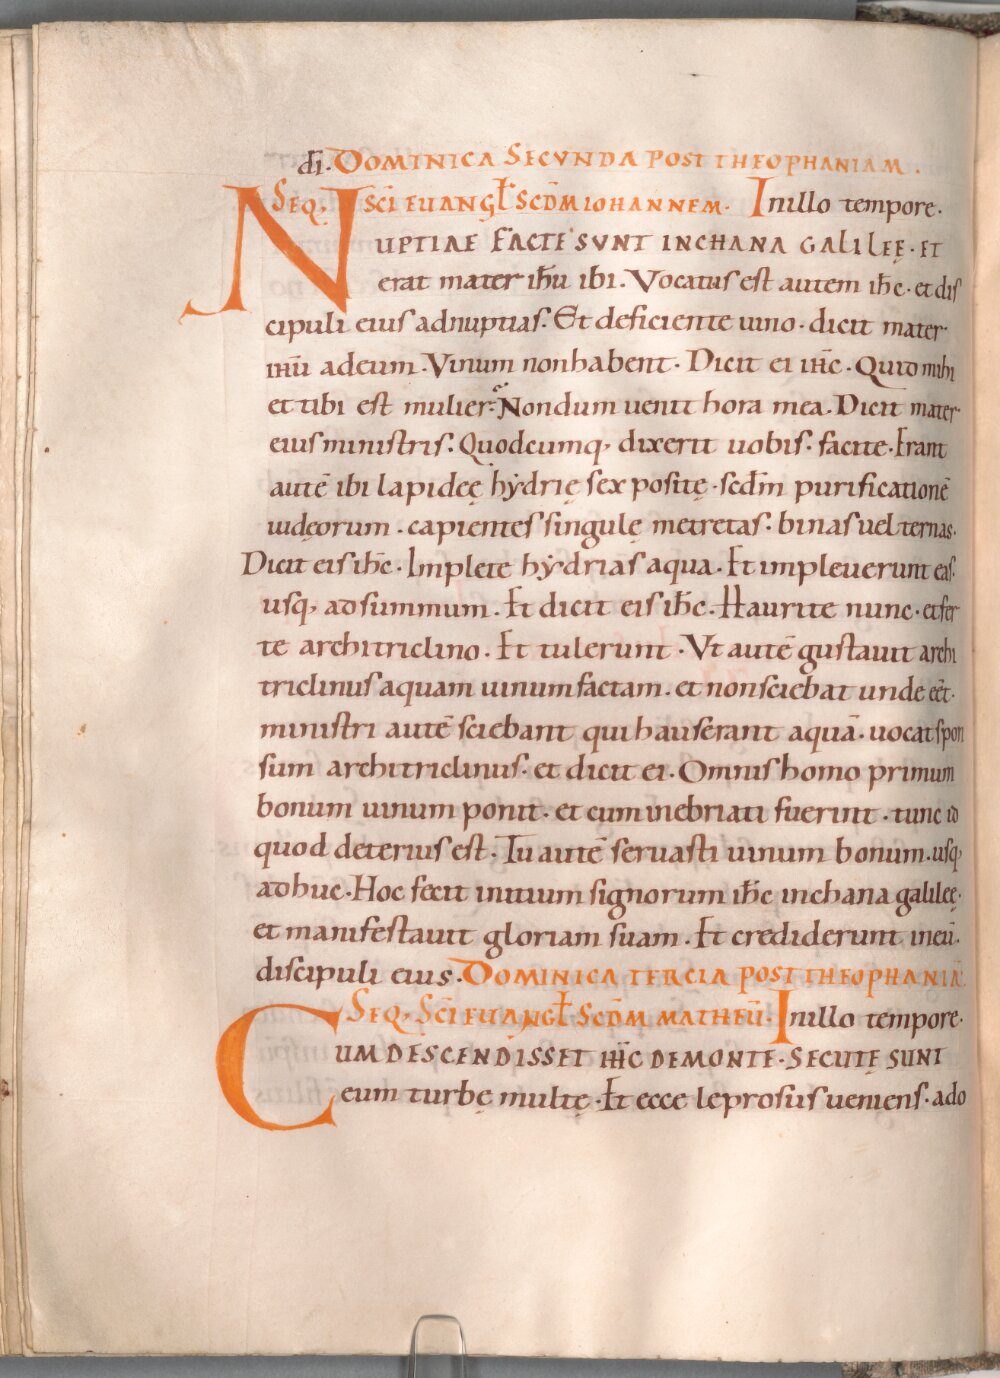 dī. DOMINICA SECVNDA POST THEOPHANIAM.
SEQ, SCĪ EUANGŁ SCDM̄ IOHANNEM. In illo tempore.
NUPTIAE FACTE SVNT IN CHANA GALILEĘ. ET
erat mater ihū ibi. Vocatus est autem ihc̄. et dis
cipuli eius ad nuptias. Et deficiente uino. dicit mater
ihū ad eum. Vinum non habent. Dicit ei ihc̄. Quid mihi
et tibi est mulier? Nondum uenit hora mea. Dicit mater
eius ministris. Quodcumq, dixerit uobis. facite. Erant
autē ibi lapideę hẏdrię sex positę. scdm̄ purificationē
iudęorum. capientes singulę metretas. binas uel ternas.
Dicit eis ihc̄. Implete hẏdrias aqua. Et impleuerunt eas.
usq, ad summum. Et dicit eis ihc̄. Haurite nunc. et fer
te architriclino. Et tulerunt. Vt autē gustauit archi
triclinus aquam uinum factam. et non sciebat unde eēt.
ministri autē sciebant qui hauserant aquā. uocat spon
sum architriclinus. et dicit ei. Omnis homo primum
bonum uinum ponit. et cum inebriati fuerint. tunc id
quod deterius est. Tu autē seruasti uinum bonum. usq,
adhuc. Hoc fecit initium signorum ihc̄ in chana galileę.
et manifestauit gloriam suam. Et crediderunt in eū.
discipuli eius. DOMINICA TERCIA POST THEOPHANIĀ.
SEQ, SCĪ EUANGŁ SCDM̄ MATHEŪ. In illo tempore.
CUM DESCENDISSET IHC̄ DE MONTE. SECUTĘ SUNT
eum turbę multę. Et ecce leprosus ueniens. ado